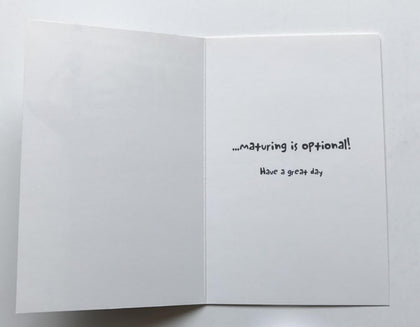 ...maturing is optional!
Have a great day